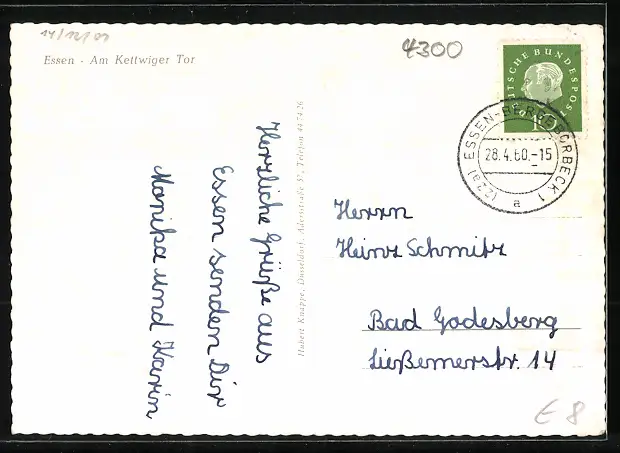 14/12/01
4300
Essen - Am Kettwiger Tor
DEUTSCHE BUNDESPOST
ESSEN-BERGEBORBECK 1
(22a)
28.4.60.-15
a
Herzliche Grüße aus
Essen senden Dir
Monika und Karin
Hubert Knappe, Düsseldorf, Adersstraße 57, Telefon
Herrn
Heinz Schmitz
Bad Godesberg
Ließemerstr. 14
E 8